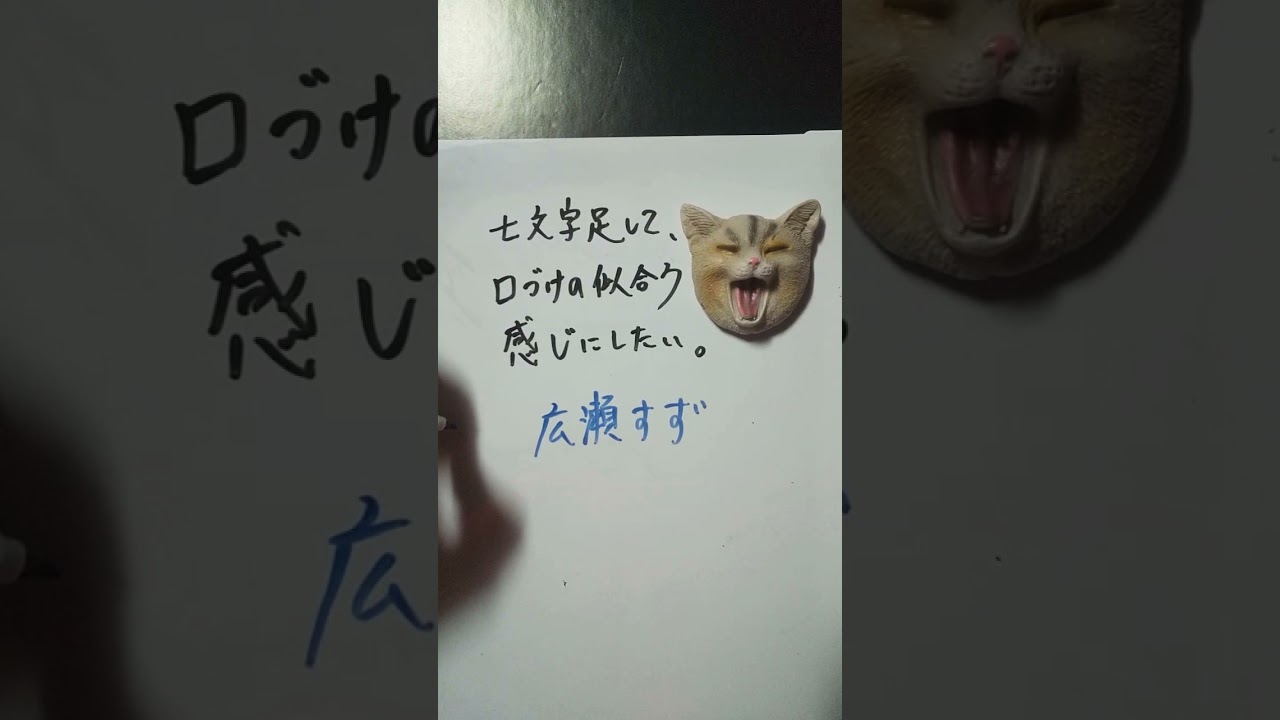 七文字足して、
口づけの似合う
感じにしたい。
広瀬すず